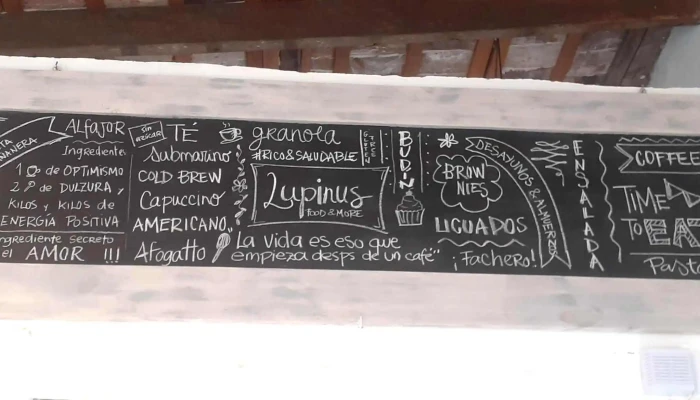 MAÑANERA
ALFAJOR
Ingrediente
1 de OPTIMISMO
2 de DULZURA y
KILOS y KILOS de
ENERGÍA POSITIVA
ingrediente secreto
el AMOR !!!
sin azúcar
TÉ
Submarino
COLD BREW
Capuccino
AMERICANO
Afogatto
granola
#RICO&SALUDABLE
GLUTEN
FREE
Lupinus
FOOD & MORE
La vida es eso que
empieza desps de un café"
BUDÍN
BROW
NIES
LICUADOS
¡Fachero!
DESAYUNOS & ALMUERZOS
ENSALADA
COFFEE
TIME
TO EA
Pasta